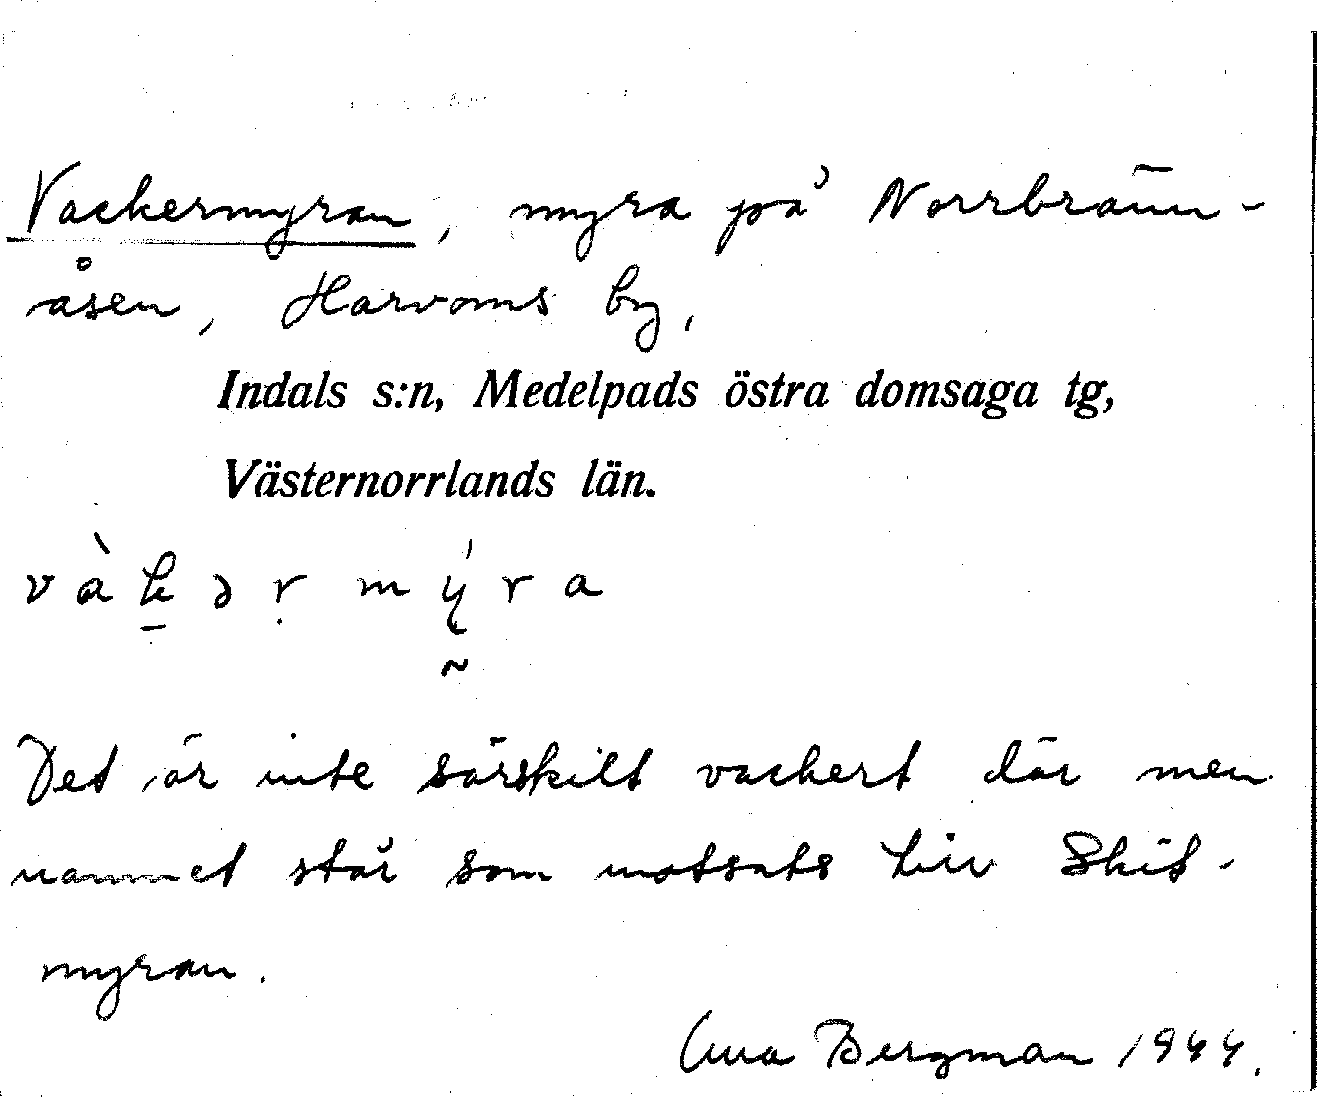 Vackermyran, myra på Norrbränn-
åsen, Harvoms by,
Indals s:n, Medelpads östra domsaga tg,
Västernorrlands län.
vàk̠ərmý̨ra
Det är inte särskilt vackert där men
namnet står som motsats till Skit-
myran.
Anna Bergman 1944.